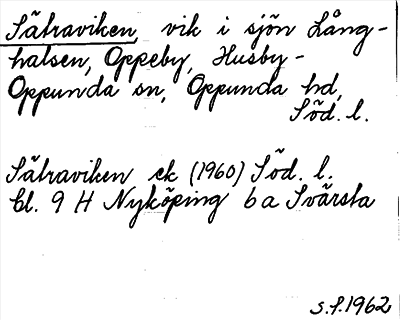 Sätraviken, vik i sjön Lång-
halsen, Oppeby, Husby-
Oppunda sn, Oppunda hd,
Söd. l.
Sätraviken ek (1960) Söd. l.
bl. 9 H Nyköping 6 a Svärsta
S.F. 1962